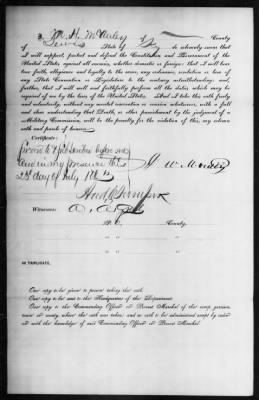 I, W. H. McAuley of the County
Lewis State of Ky do solemnly swear that
I will support, protect and defend the Constitution and Government of the
United States against all enemies, whether domestic or foreign; that I will bear
true faith, allegiance and loyalty to the same, any ordinance, resolution or law of
any State Convention or Legislature to the contrary notwithstanding; and
further, that I will well and faithfully perform all the duties which may be
required of me by the laws of the United States. And I take this oath freely
and voluntarily, without any mental reservation or evasion whatsoever, with a full
and clear understanding that Death, or other punishment by the judgment of a
Military Commission, will be the penalty for the violation of this, my solemn
oath and parole of honor.
Certificate:
sworn to & subscribed before me
and in my presence this
day of July 186
Witnesses:
P. O. County.
" " "
" " "
IN TRIPLICATE.
One copy to be given to person taking this oath.
One copy to be sent to the Headquarters of the Department.
One copy to the Commanding Officer or Provost Marshal of the camp, garrison
town or county, where this oath was taken; and no oath to be administered except by order
or with the knowledge of said Commanding Officer or Provost Marshal.